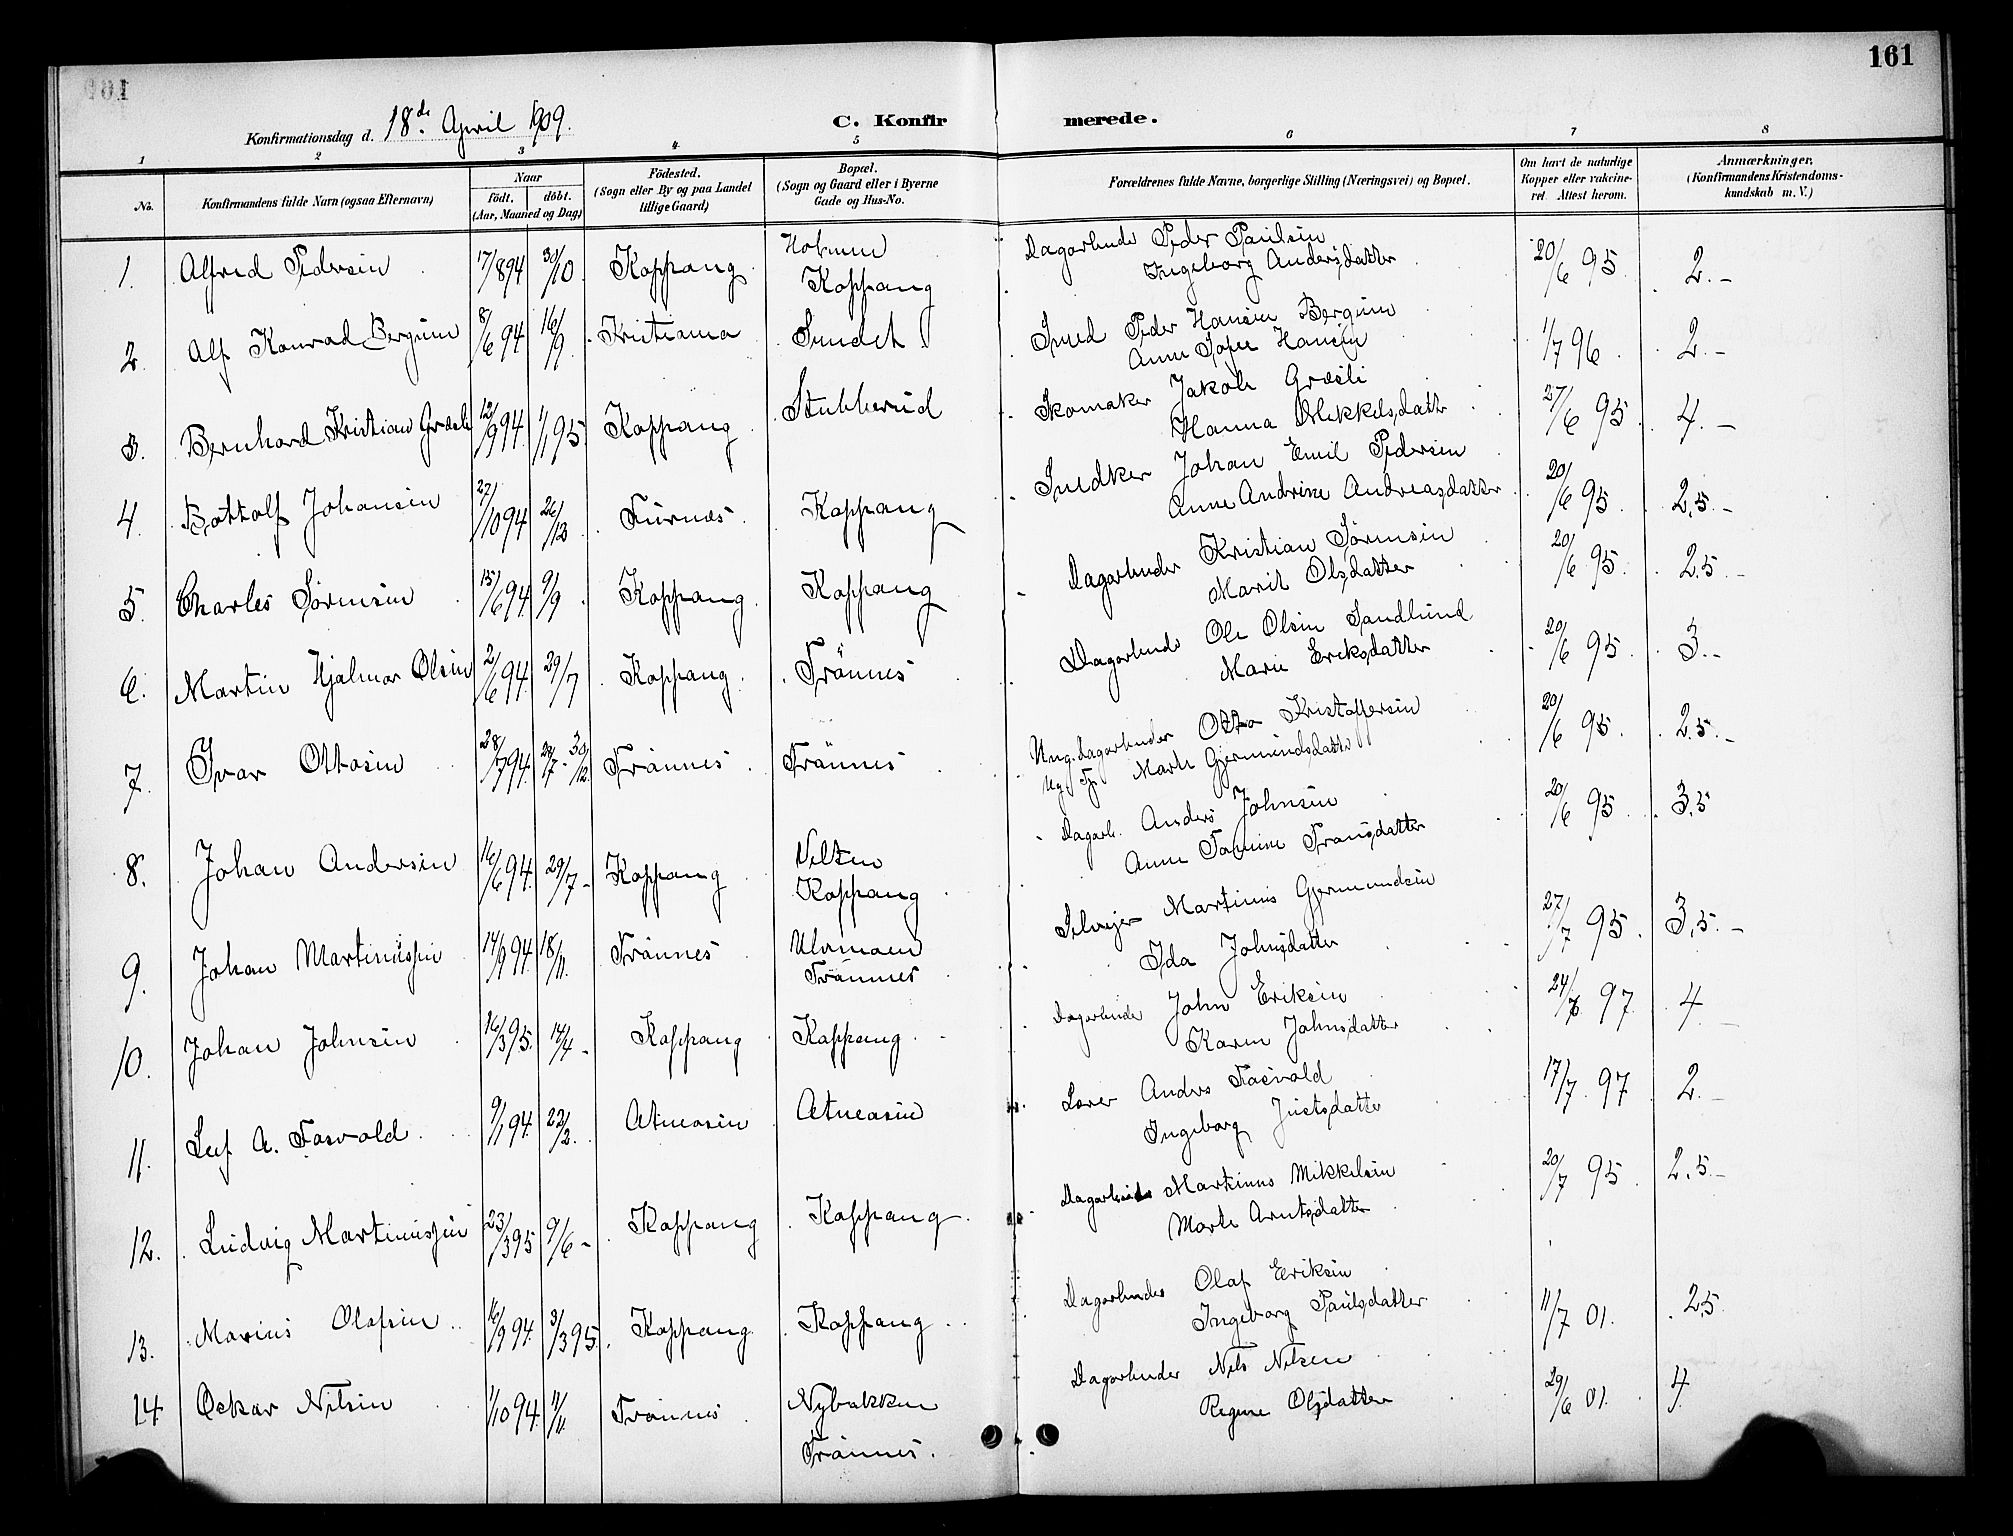 161
Konfirmationsdag d. 18de April 1909.
C. Konfirmerede.
1 2 3 4 5 6 7 8
No. Konfirmandens fulde Navn (ogsaa Efternavn) Naar født. døbt. (Aar, Maaned og Dag) Födested. (Sogn eller By og paa Landet tillige Gaard) Bopæl. (Sogn og Gaard eller i Byerne Gade og Hus-No. Forældrenes fulde Navne, borgerlige Stilling (Næringsvei) og Bopæl. Om havt de naturlige Kopper eller vaccineret. Attest herom. Anmærkninger, (Konfirmandens Kristendomskundskab m. V.)
1. Alfred Pedersen 17/8 94 30/10 Koppang Koppang Dagarbeider Peder Paulsen 20/6 95 2.-
Ingeborg Andersdatter
2. Alf Konrad Bergum 8/6 94 16/9 Kristiania Sundet Smed Peder Hansen Bergum 1/7 96 2.-
Anne Sofie Hansen
3. Bernhard Kristian Græsli 12/9 94 1/1 95 Koppang Stubberud Skomaker Jakob Græsli 27/6 95 4.-
Hanna Mikkelsdatt
4. Bottolf Johansen 27/10 94 26/12 Furnes Koppang Snedker Johan Emil Pedersen 20/6 95 2,5.-
Anne Andrine Andreasdatter
5. Charles Sørensen 15/6 94 9/9 Koppang Koppang Dagarbeider Kristian Sørensen 20/6 95 2,5.-
Marit Olsdatter
6. Martin Hjalmar Olsen 2/6 94 29/7 Koppang Trønnes Dagarbeide Ole Olsen Sandlund 20/6 95 3.-
Marie Eriksdatter
7. Ivar Ottosen 28/7 94 28/7 - 30/12 Trønnes Trønnes Ung. Dagarbeider Otto Kristoffersen 20/6 95 2,5.-
Ug. Tj. Marte Gjermundsdatt
8. Johan Andersen 16/6 94 29/7 - Koppang Velten Koppang Dagarb. Anders Johnsen 20/6 95 3,5
Anne Fransdatter
9. Johan Martinussen 14/9 94 18/11. Trønnes Ulvmoen Trønnes Selveier Martinus Gjermundsen 27/7 95 3,5.-
Ida Johnsdatter
10. Johan Johnsen 16/3 95. 14/4 - Koppang Koppang Dagarbeide John Eriksen 24/7 97 4
Karen Johnsdatter
11. Leif A. Fosvold 9/1 94. 22/2. Atneosen Atneosen Lærer Anders Fosvold 17/7 97 2.-
Ingeborg Justsdatter
12. Ludvig Martinussen 23/3 95 9/6 - Koppang Koppang Dagarbeide Martinus Mikkelsen 20/7 95 2.5.-
Marte Arntsdatter
13. Marius Olafsen 16/9 94 3/3 95. Koppang Koppang Dagarbeider Olaf Eriksen 11/7 01. 2,5
Ingeborg Paulsdatter
14 Oskar Nilsen 1/10 94 11/11. Trønnes Nybakken Trønnes. Dagarbeider Nils Nilsen 29/6 01. 4
Regine Olsdatter